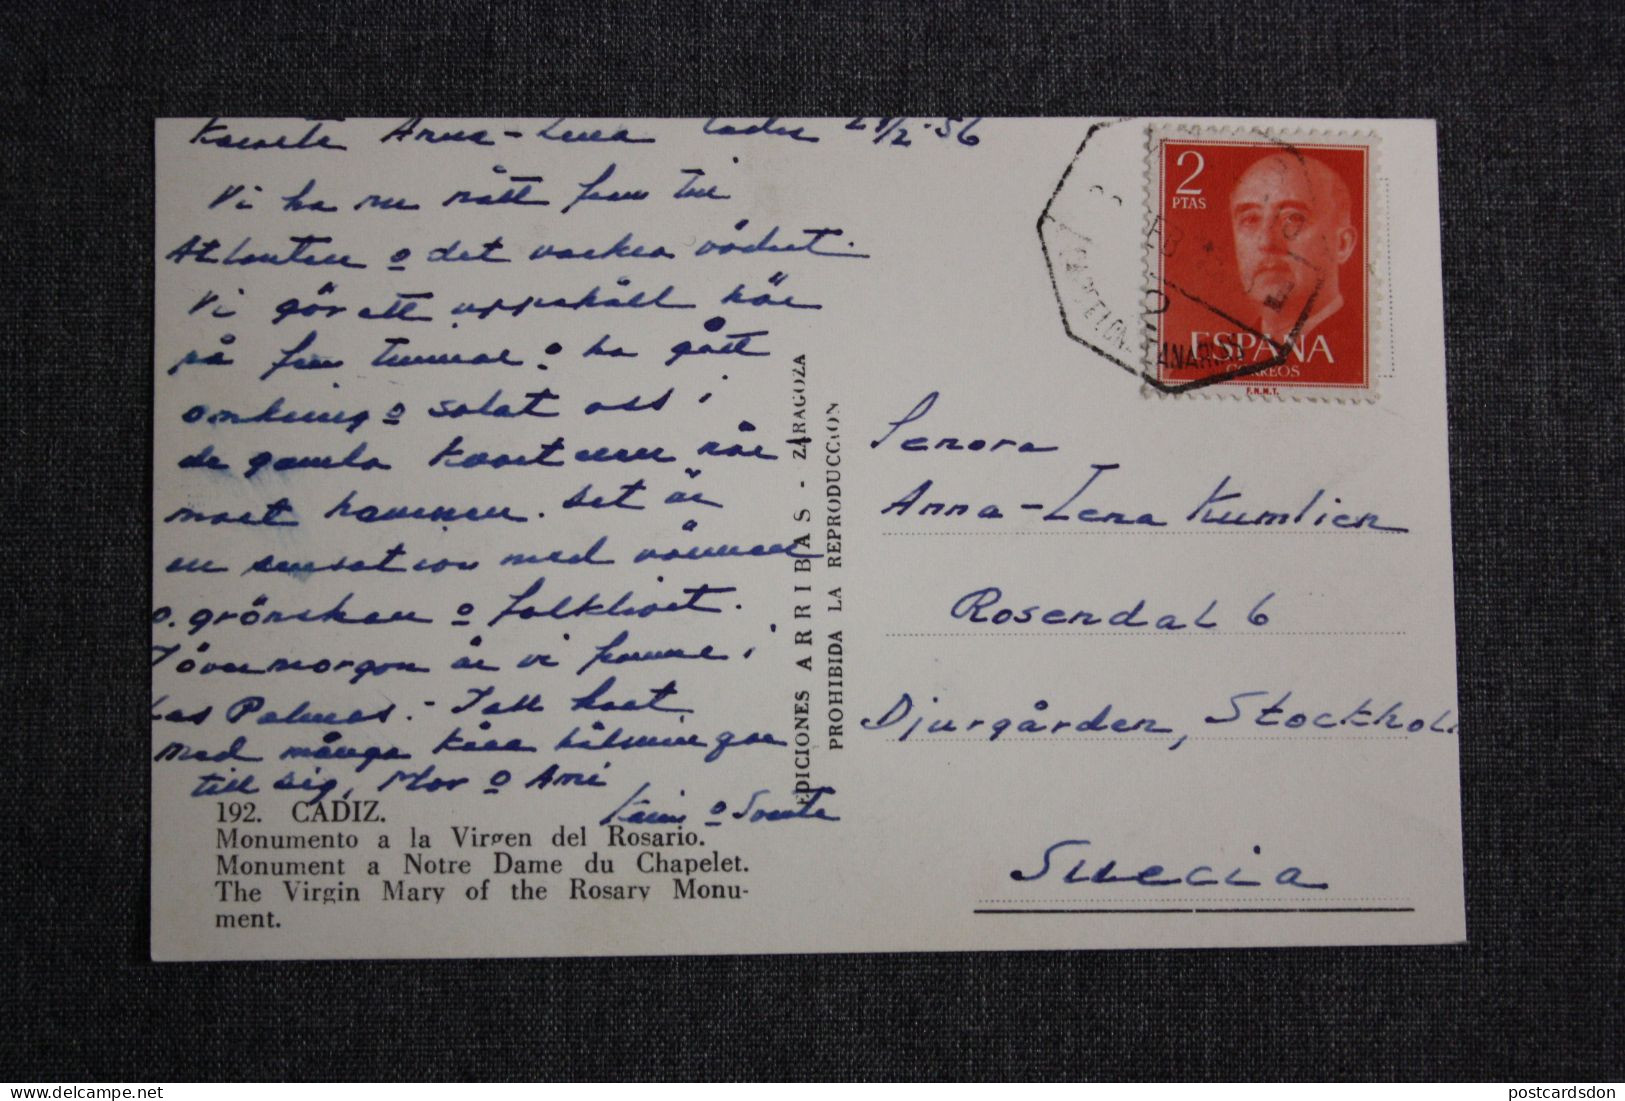 Anna-Lena Cadiz 28/2-56
Vi ha nu nått fram till
Atlanten o det vackra vädret.
Vi gör ett uppehåll här
på fem timmar o ha gått
omkring o solat oss i
de gamla kvarteren när
mot hamnen. Det är
en sensation med värmen
o. grönskan o folklivet.
I övermorgon är vi framme i
Las Palmas. - Tack
med många kära hälsningar
till sig, Mor o Ami
192. CADIZ.
Monumento a la Virgen del Rosario.
Monument a Notre Dame du Chapelet.
The Virgin Mary of the Rosary Monu-
ment.
EDICIONES ARRIBAS - ZARAGOZA
PROHIBIDA LA REPRODUCCION
2
PTAS
ESPAÑA
CORREOS
F.N.M.T.
Senora
Anna-Lena Kumlien
Rosendal 6
Djurgården, Stockholm
Suecia
postcardsdon